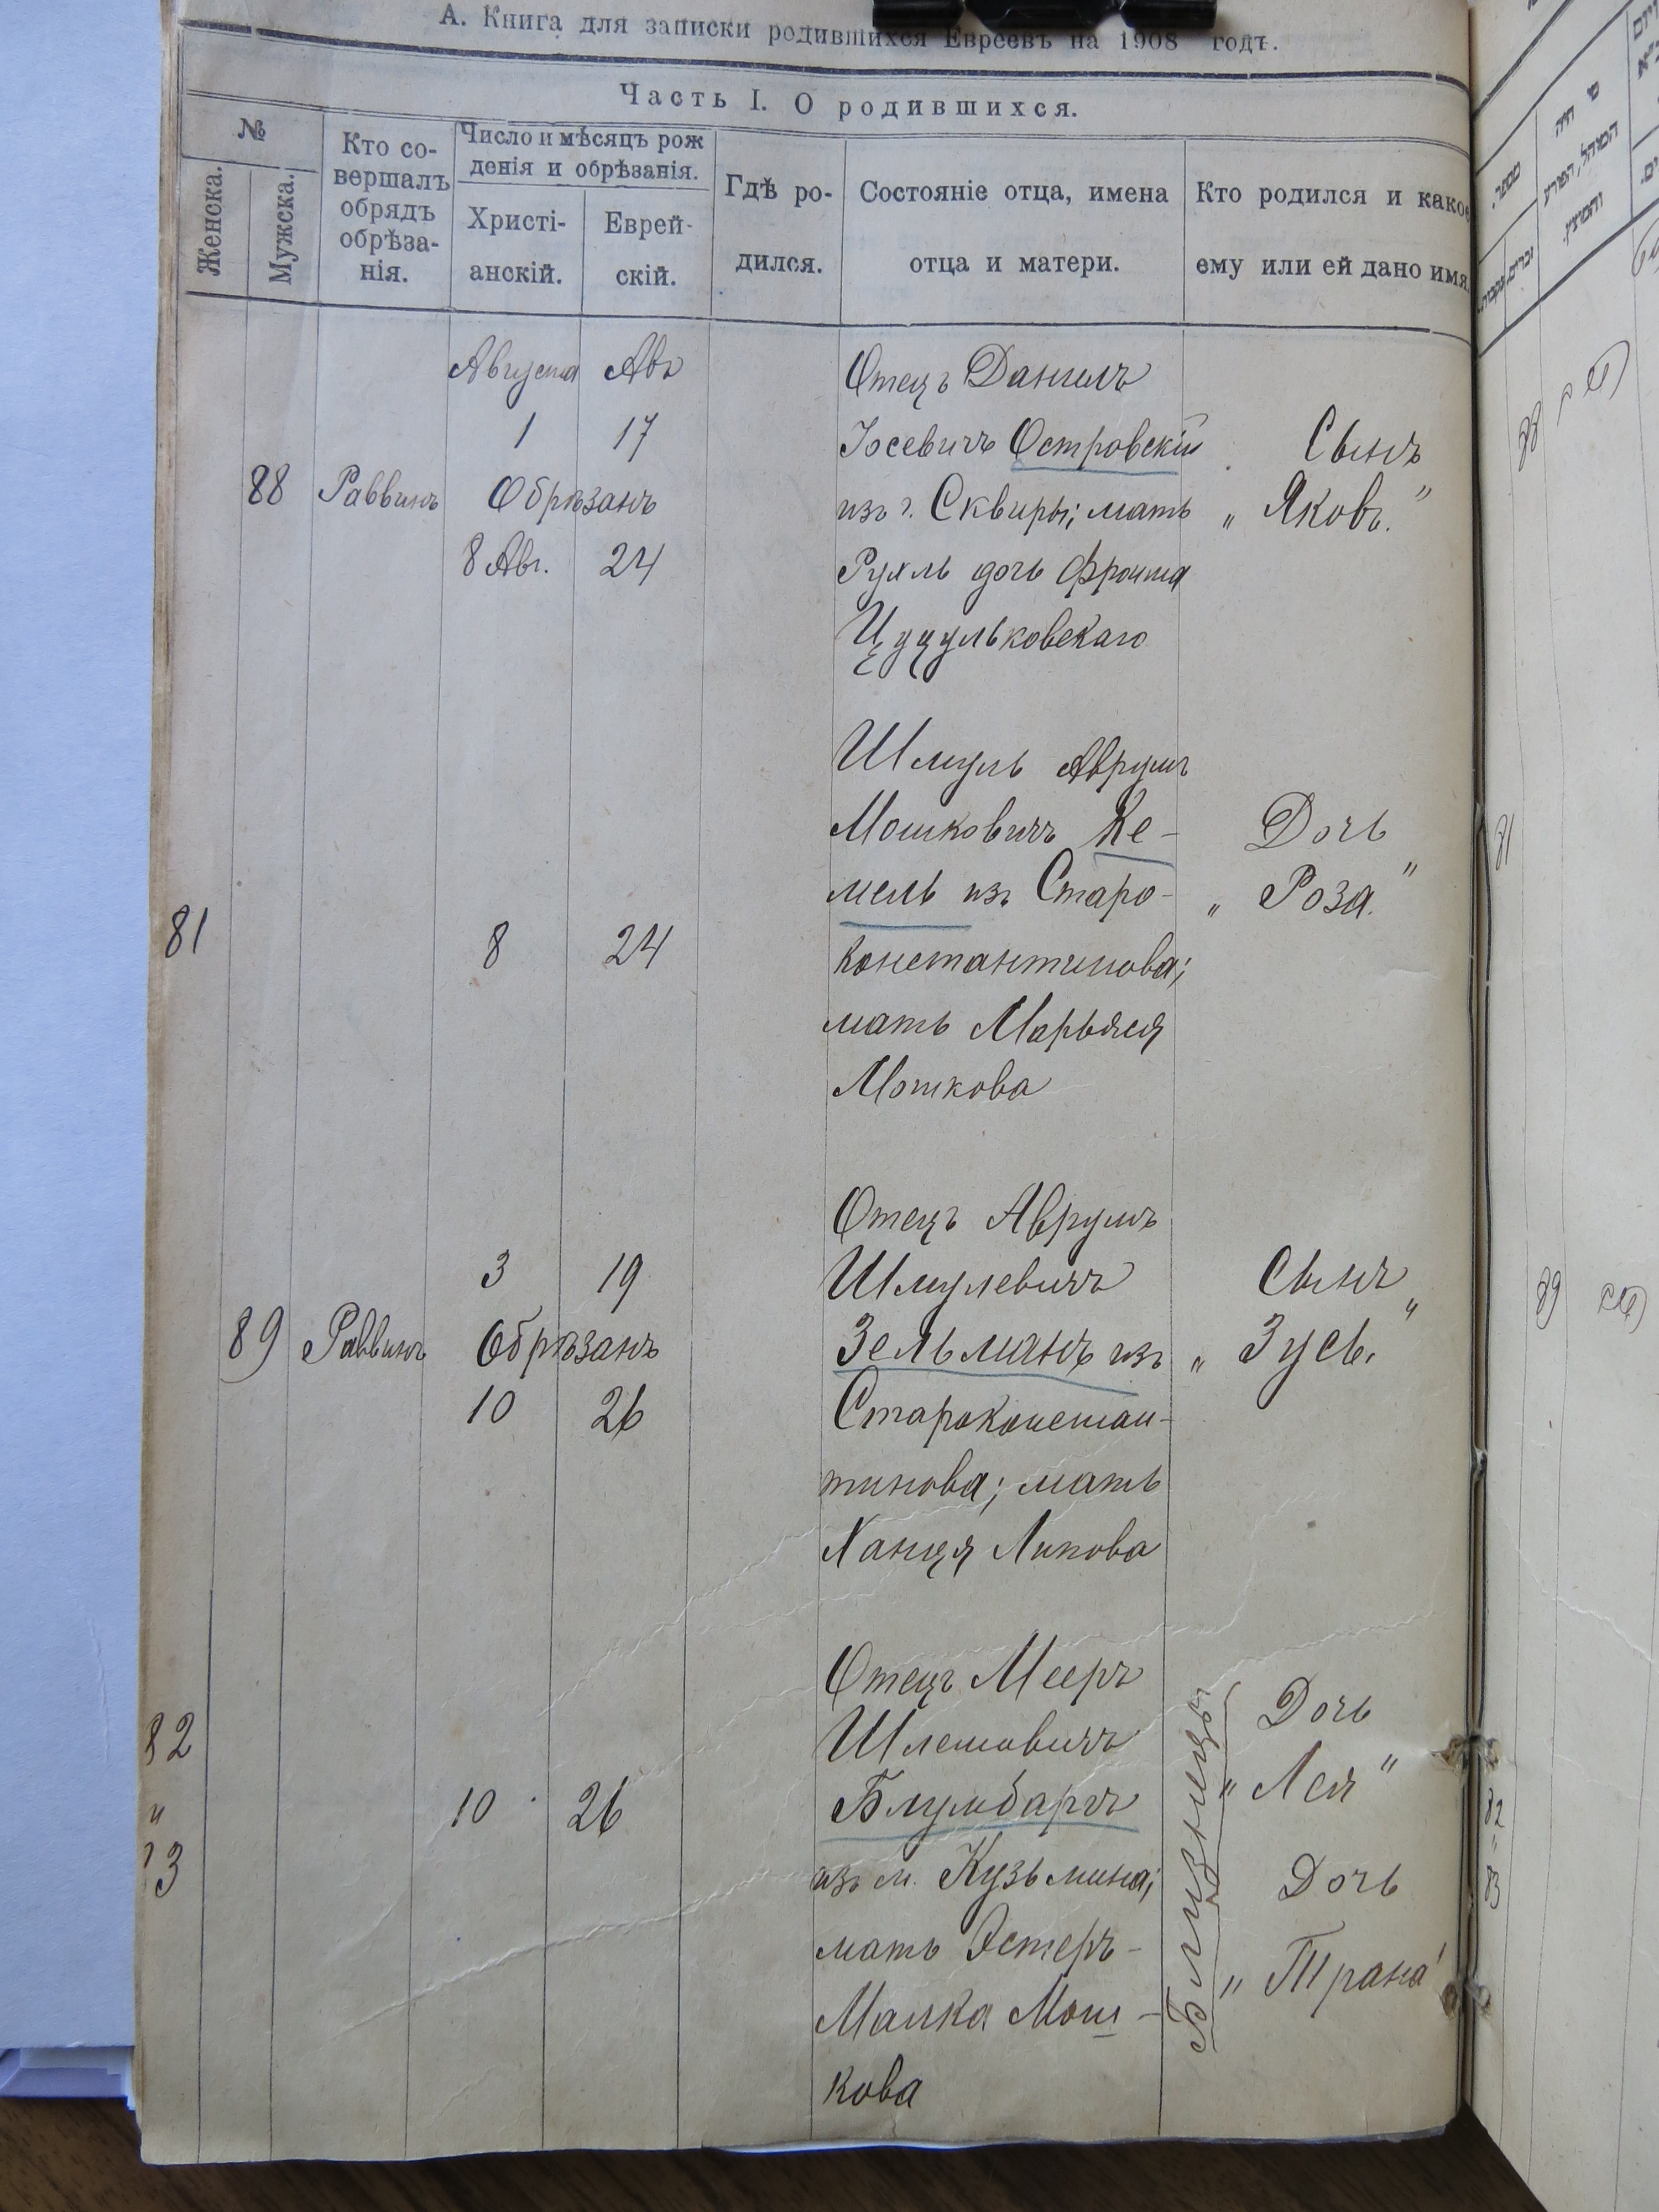 А. Книга для записки родившихся Евреевъ на 1908 годъ.
Часть I. О родившихся.
№
Женска.
Мужска.
Кто со-
вершалъ
обрядъ
обрѣза-
нія.
Число и мѣсяцъ рож
денія и обрѣзанія.
Христі-
анскій.
Еврей-
скій.
Гдѣ ро-
дился.
Состояніе отца, имена
отца и матери.
Кто родился и какое
ему или ей дано имя.
Августа Авъ
1 17
88 Раввинъ Обрѣзанъ
8 Авг. 24
Отецъ Данилъ
Іосевичъ Островскій
изъ г. Сквиры; мать
Рухль дочь Фроима
Цуцульковскаго
Сынъ
„ Яковъ."
81 8 24
Шмуль Аврумъ
Мошковичъ Ке-
мель изъ Старо-
константинова;
мать Марьяся
Мошкова
Дочь
„ Роза."
3 19
89 Раввинъ Обрѣзанъ
10 26
Отецъ Аврумъ
Шмулевичъ
Зельманъ изъ
Староконстан-
тинова; мать
Ханця Липова
Сынъ
„ Зусь."
82
"
83
10 26
Отецъ Мееръ
Шлемовичъ
Блумбаргъ
изъ м. Кузьмина;
мать Эстеръ-
Малка Мош-
кова
Близнецы
Дочь
„ Лея"
Дочь
„ Трана"
88
81
89
82
"
83